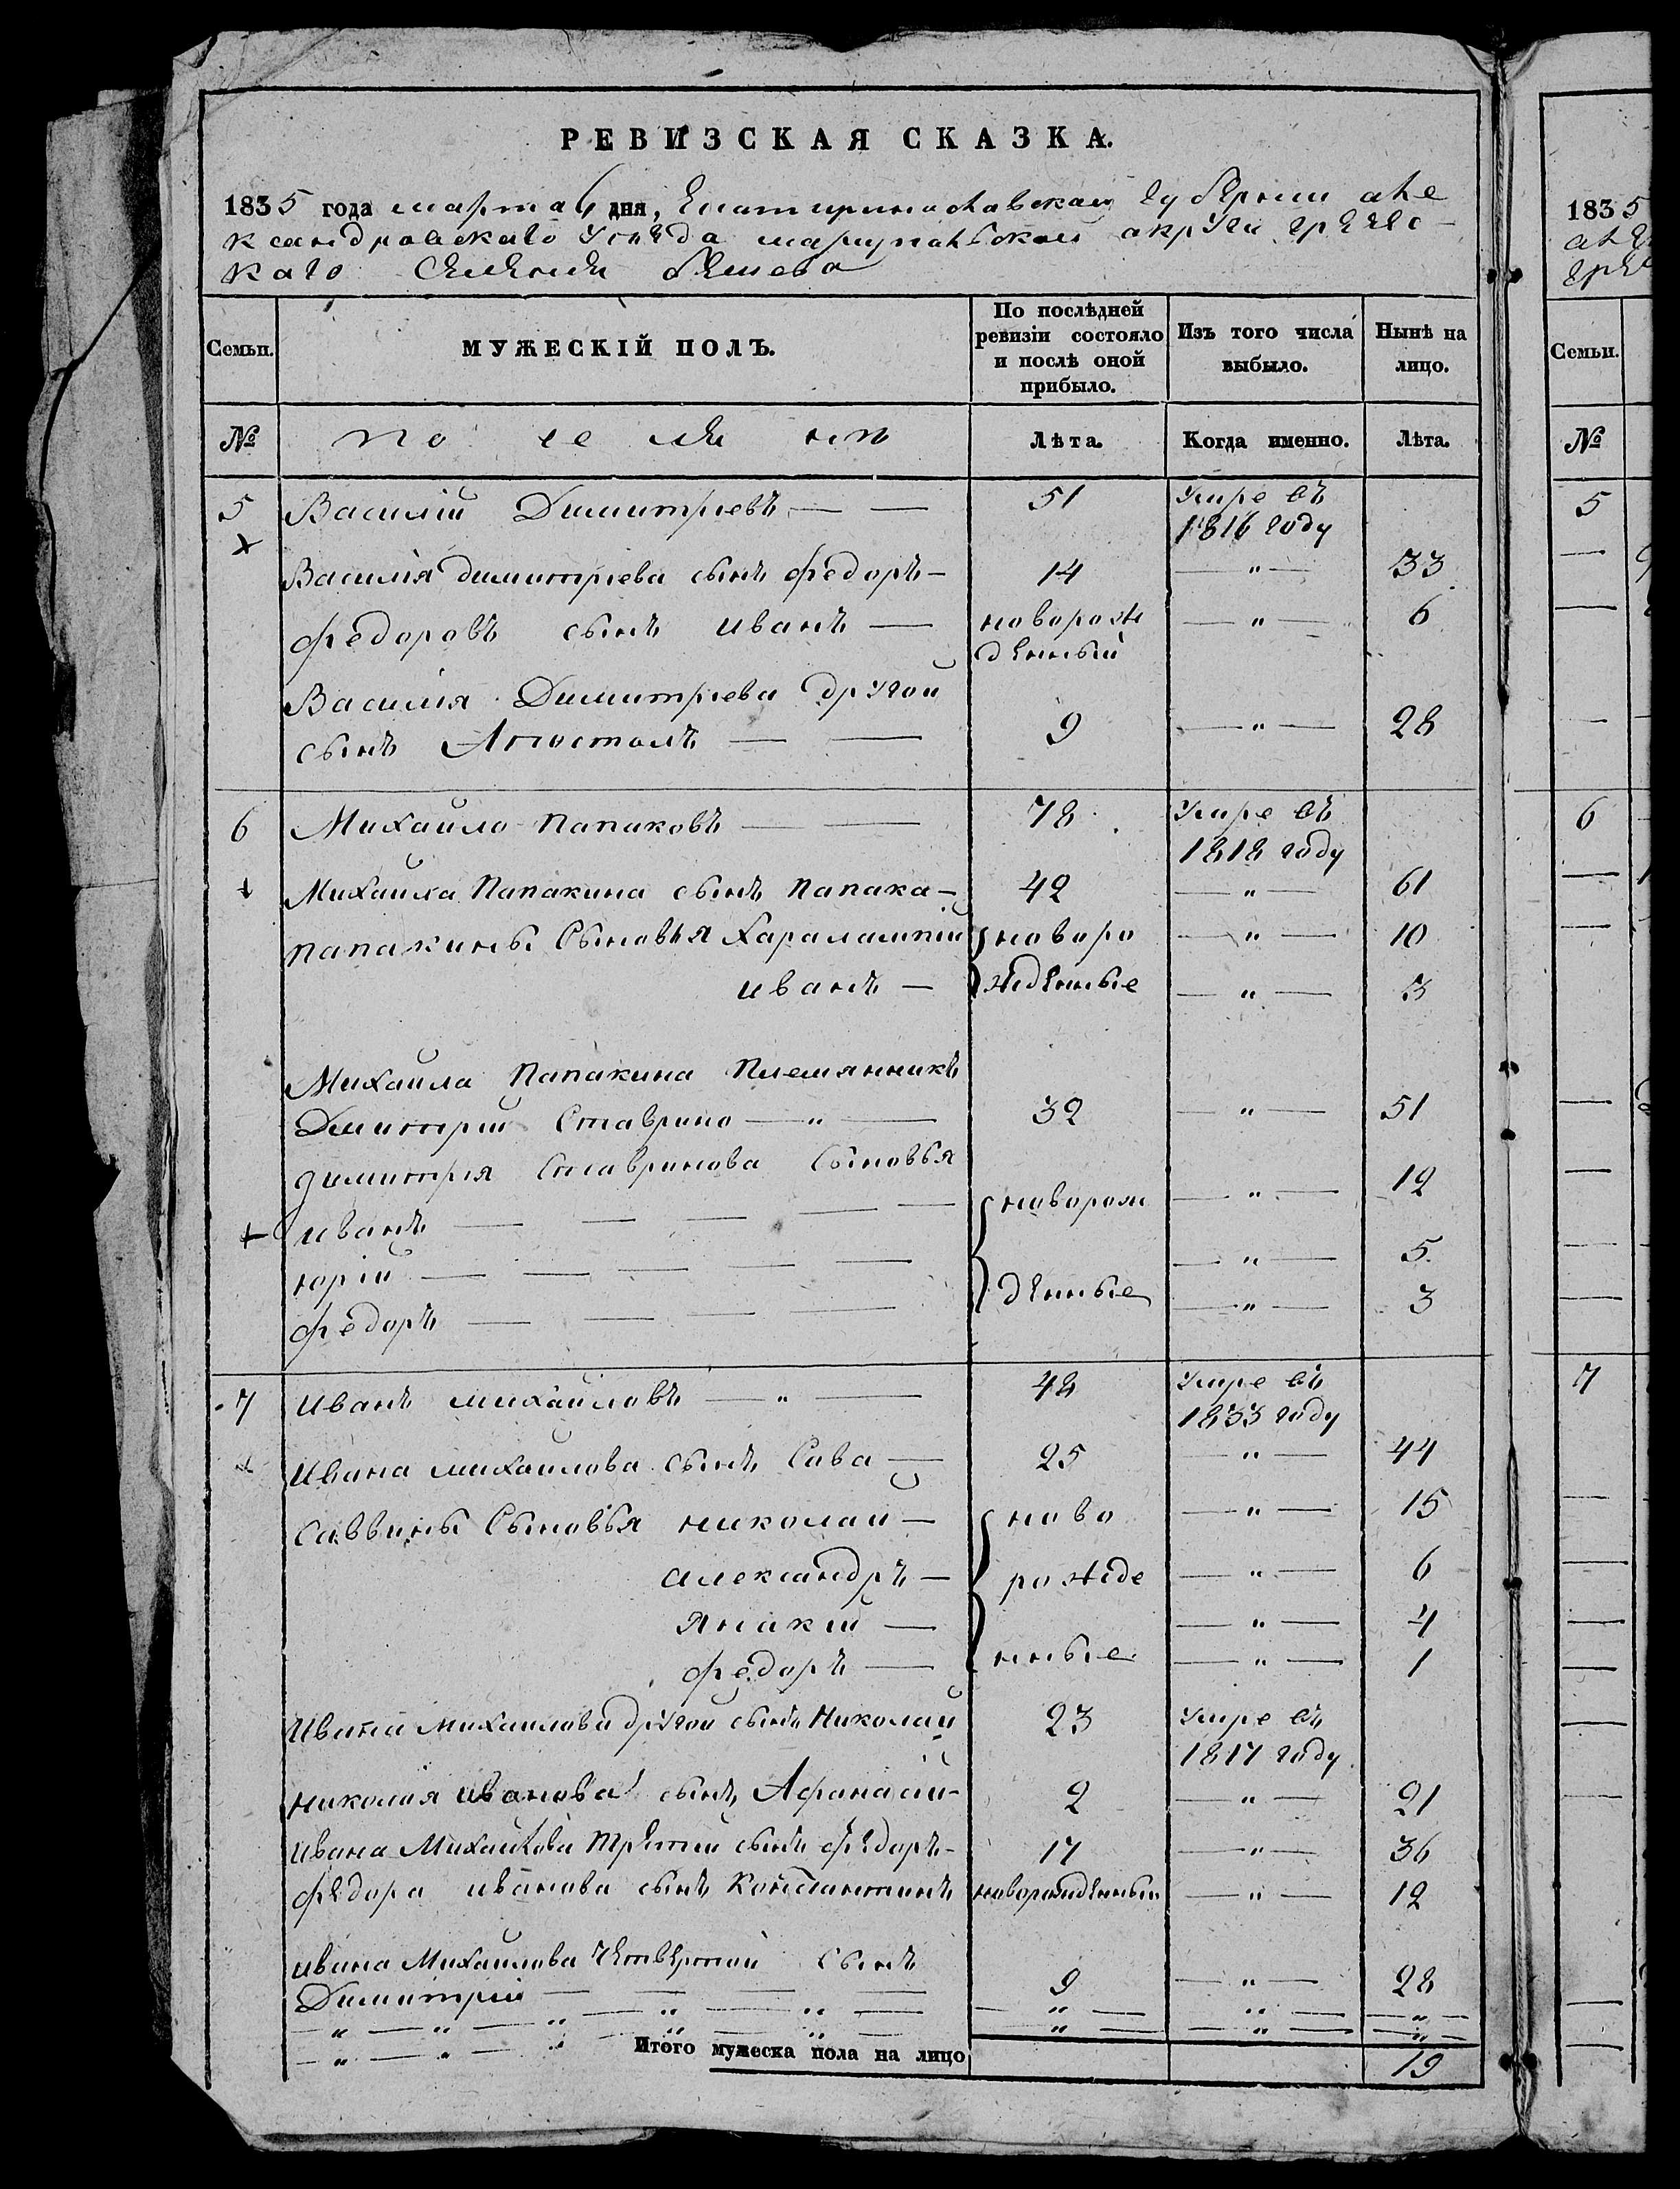 РЕВИЗСКАЯ СКАЗКА.
1835 года марта дня, Екатиринославской губернии але
ксандровскаго уезда мариупольской округи гречес-
каго селения бешева
Семьи. МУЖЕСКІЙ ПОЛЪ. По послѣдней ревизіи состояло и послѣ оной прибыло. Изъ того числа выбыло. Нынѣ на лицо.
№ поселяне Лѣта. Когда именно. Лѣта.
5 Василій Димитріевъ — — 51 умре въ 1816 году
Х
Василія димитріева сынъ федоръ — 14 — " — 33
федоровъ сынъ иванъ — новорож денный — " — 6
Василія Димитріева другой
сынъ Апостолъ — — 9 — " — 28
6 Михайло папаковъ — — 78 умре въ 1818 году
+ Михайла Папакина сынъ папака — 42 — " — 61
папакины сыновья Харалампій новоро — " — 10
иванъ — жденные — " — 3
Михайла Папакина племянникъ
Димитрій Ставрино — " — 32 — " — 51
димитрія Ставринова сыновья
+ иванъ — — — — — новорож — " — 12
юрій — — — — — — " — 5
федоръ — — — — денные — " — 3
7 иванъ михайловъ — " — 48 умре въ 1833 году
ивана михайлова сынъ Сава — 25 — " — 44
саввины сыновья николай — ново — " — 15
александръ — рожде — " — 6
янакій — — " — 4
федоръ — нные — " — 1
ивана михайлова другой сынъ николай 23 умре въ 1817 году
николая иванова сынъ Афанасій — 2 — " — 21
ивана Михайлова третий сынъ федоръ — 17 — " — 36
федора иванова сынъ константинъ новорожденный — " — 12
ивана Михайлова четвертой сынъ
Димитрій — — — — 9 — " — 28
Итого мужеска пола на лицо 19
1835
але
гре
Семьи.
№
5
6
7